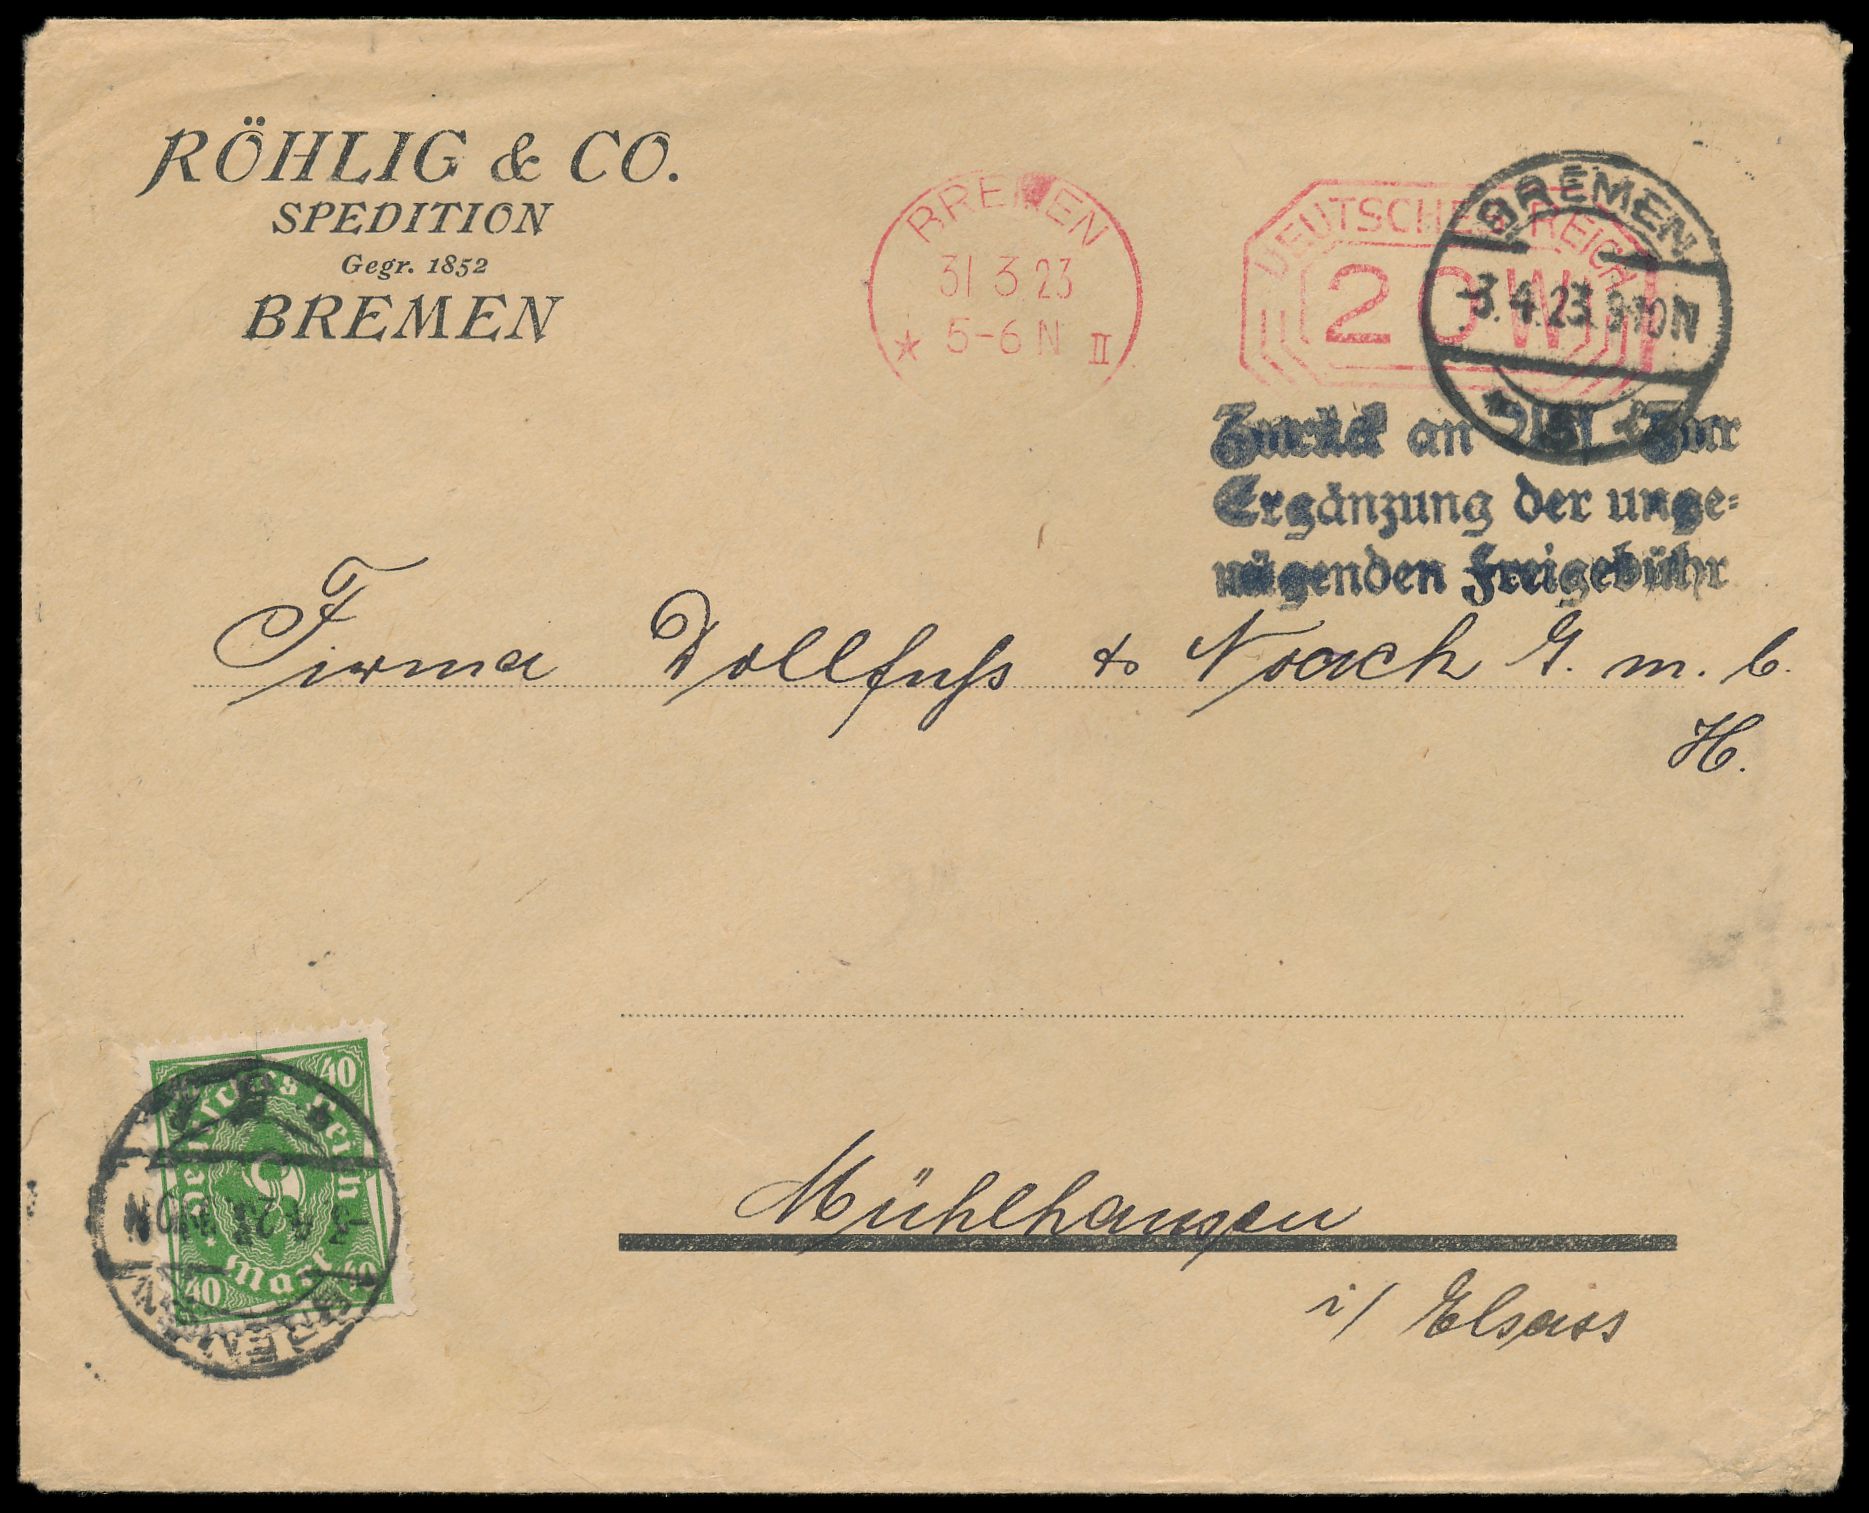 RÖHLIG & CO.
SPEDITION
Gegr. 1852
BREMEN
BREMEN
31 3.23
* 5-6 N II
DEUTSCHES REICH
20
BREMEN
-3.4.23. 9-10 N
Zurück an Zur
Ergänzung der unge=
nügenden Freigebühr
Firma Dollfuß & Noack G. m. b.
H.
Mühlhausen
i/ Elsass
40
Deutsches Reich
40 Mark 40
BREMEN